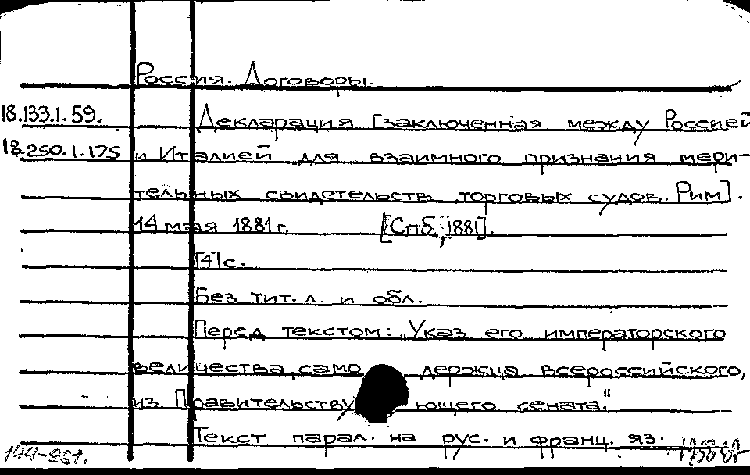 Россия. Договоры.
18.133.1.59. Декларация [заключенная между Россией
18.250.1.175 и Италией для взаимного признания мери-
тельных свидетельств торговых судов. Рим].
14 мая 1881 г. [Спб, 1881].
[4] с.
Без тит. л. и обл.
Перед текстом: „Указ его императорского
величества, само держца всероссийского,
из Правительству ющего сената."
Текст парал. на рус. и франц. яз.